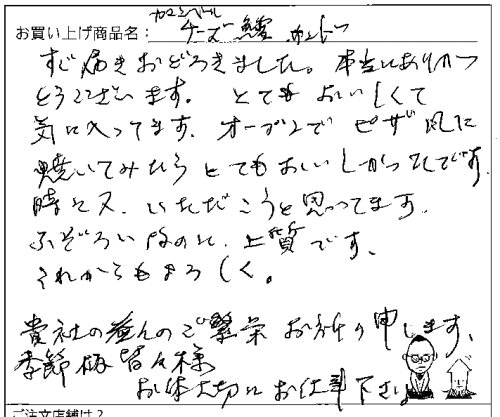 カマンベール
お買い上げ商品名： チーズ鱈
すぐ届きおどろきました。本当にありがつ
とうございます。とてもおいしくて
気に入ってます。オーブンで ピザ風に
焼いてみたらとてもおいしかったです。
時に又、いただこうと思ってます。
ふぞろいなのに、上質です、
これからもよろしく。
貴社の益々のご繁栄お祈り申します、
季節柄皆々様
お体大切にお仕事下さい
ご注文店舗は？